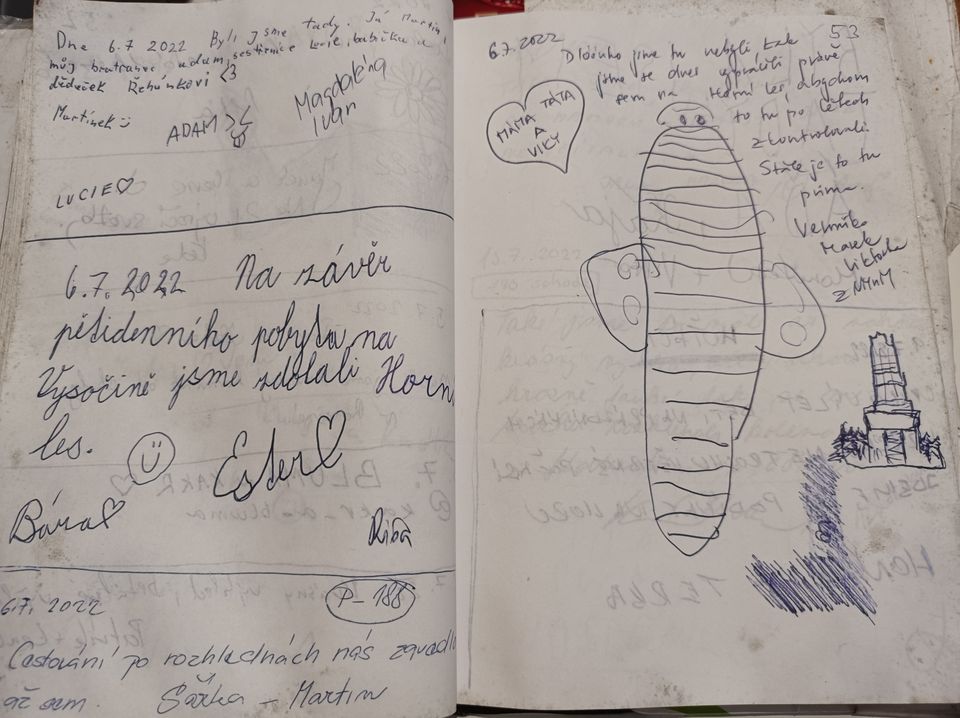 Dne 6.7 2022 Byli jsme tady. Já Martin,
můj bratranec adam, sestřenice Lucie, babička a
dědeček Řehůnkovi <3
Martínek
ADAM
Magdaléna
Ivan
LUCIE♡
6.7.2022 Na závěr
pětidenního pobytu na
Vysočině jsme zdolali Horn
les.
Ester♡
Bára♡
Riba
6.7. 2022
P-188
Cestování po rozhlednách nás zavedl
až sem. Šárka - Martin
53
6.7.2022
Dlouho jsme tu nebyli tak
jsme se dnes vypravili právě
sem na Horní les abychom
to tu po letech
zkontrolovali.
Stále je to tu
prima.
Veronika
Marek
Viktorka
z NMnM
MÁMA TÁTA
A
VIKY